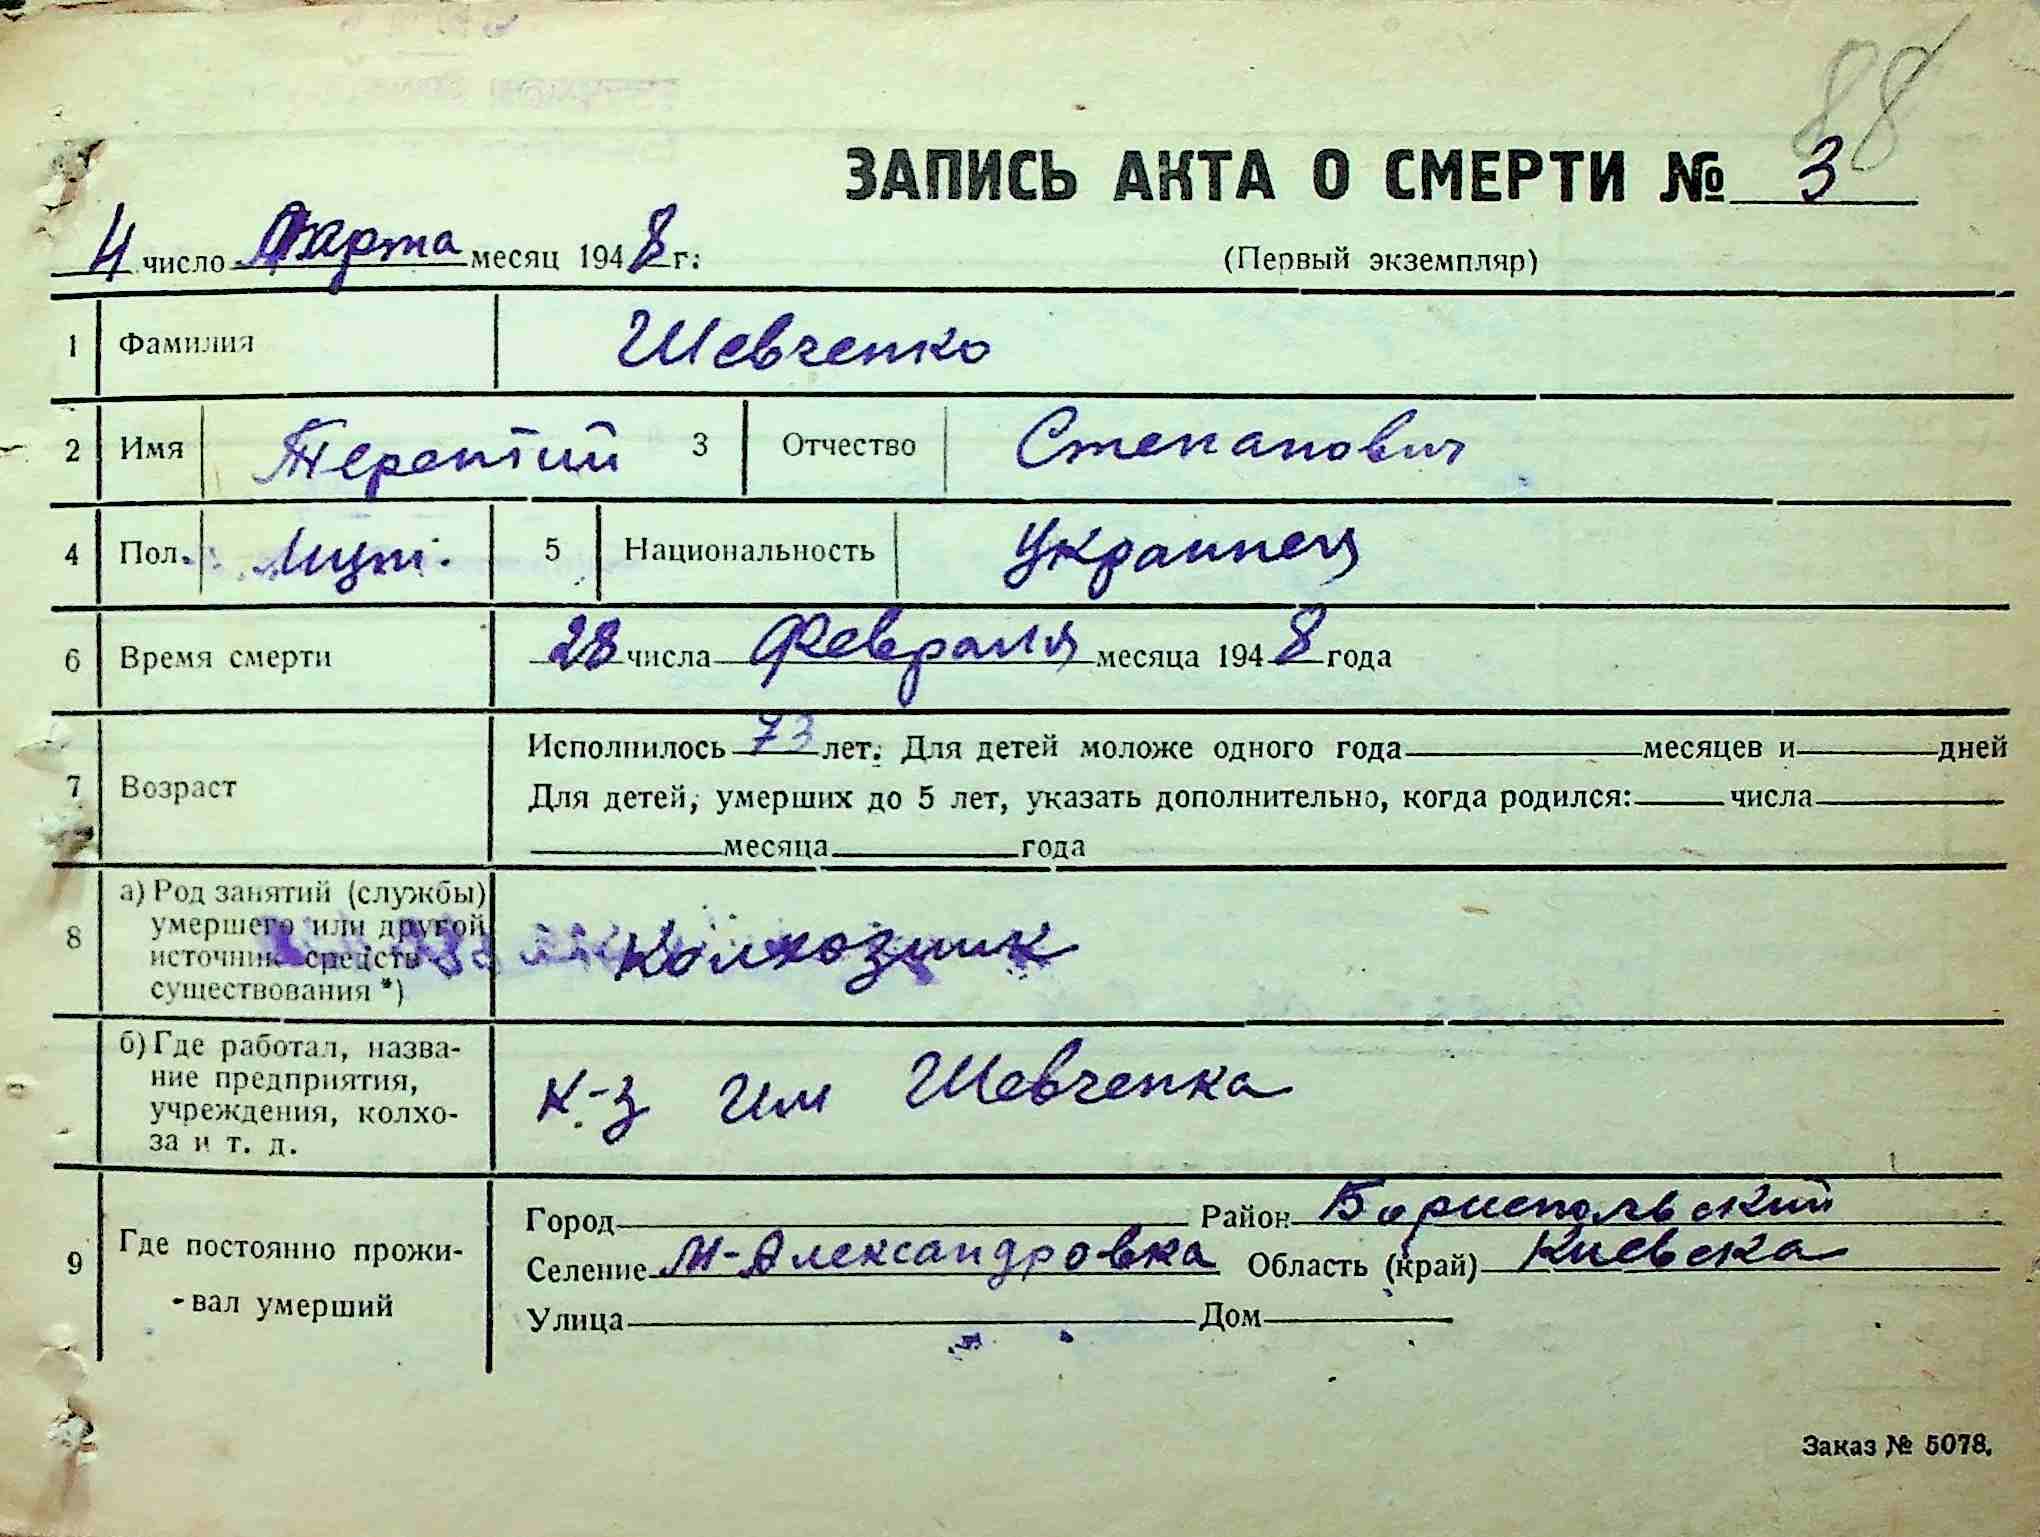 88
ЗАПИСЬ АКТА О СМЕРТИ № 3
4 число Марта месяц 1948 г.
(Первый экземпляр)
1 Фамилия Шевченко
2 Имя Терентий 3 Отчество Степанович
4 Пол. Муж. 5 Национальность Украинец
6 Время смерти 28 числа Февраля месяца 1948 года
7 Возраст
Исполнилось 73 лет. Для детей моложе одного года месяцев и дней
Для детей, умерших до 5 лет, указать дополнительно, когда родился: числа
месяца года
8 а) Род занятий (службы)
умершего или другой
источник средств
существования *)
Колхозник
б) Где работал, назва-
ние предприятия,
учреждения, колхо-
за и т. д.
К-з Им Шевченка
9 Где постоянно прожи-
-вал умерший
Город Район Бориспольский
Селение М-Александровка Область (край) Киевска
Улица Дом
Заказ № 5078.